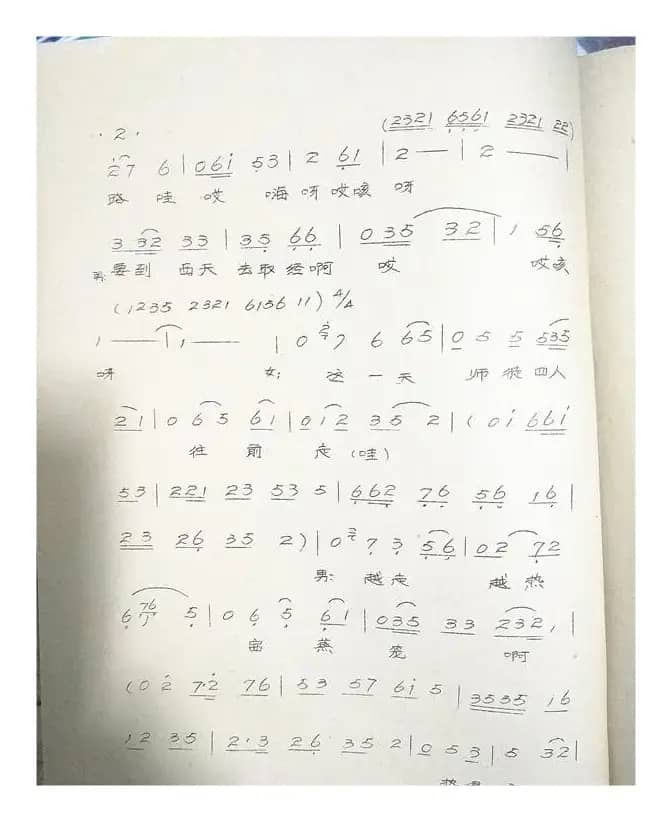 ·2·
(2321 6561 2321 22)
2̇7 6 | 061̇ 53 | 2 61 | 2 — | 2 — |
路 哇 哎 嗨 呀 哎咳 呀
3 32 33 | 35 66 | 035 32 | 1 56
男: 要到 西天 去取 经啊 哎 哎咳
(1235 2321 6156 11) 4/4
1 — | 1 — | 0 7 6 65 | 0 5 5 535
呀 女: 这 一 天 师徒 四人
21 | 0 65 61 | 012 35 2 | (01̇ 661̇
往 前 走 (哇)
53 | 221 23 53 5 | 662 76 56 16 |
23 26 35 2) | 0 7 3 56 | 02 72
男: 越 走 越 热
6 76 5 | 0 6 5 61 | 035 33 232, |
蒸 笼 啊
(0 2̇ 7·2̇ 76 | 53 57 61̇ 5 | 3535 16
12 35 | 2·3 26 35 2 | 0 5 3 | 5 32 |